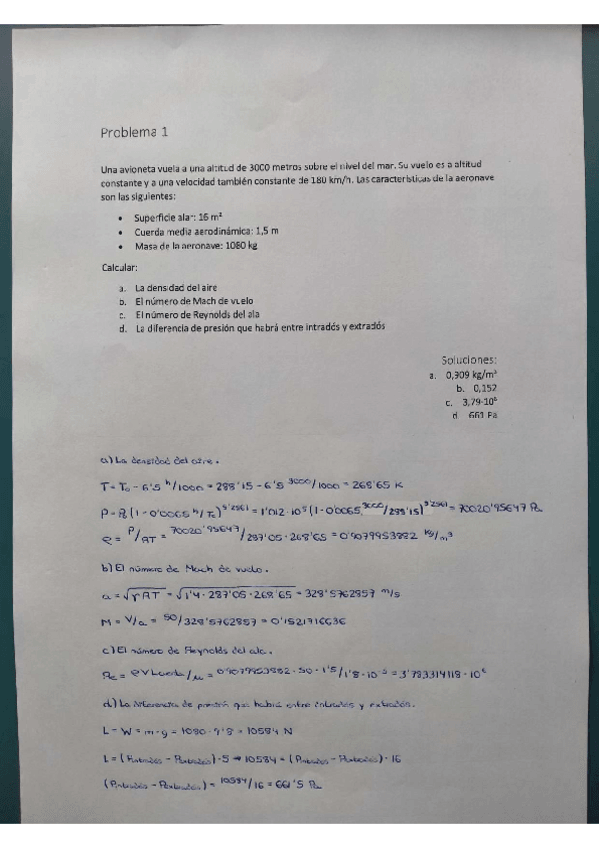 Problema 1
Una avioneta vuela a una altitud de 3000 metros sobre el nivel del mar. Su vuelo es a altitud
constante y a una velocidad también constante de 180 km/h. Las características de la aeronave
son las siguientes:
• Superficie alar: 16 m²
• Cuerda media aerodinámica: 1,5 m
• Masa de la aeronave: 1080 kg
Calcular:
a. La densidad del aire
b. El número de Mach de vuelo
c. El número de Reynolds del ala
d. La diferencia de presión que habrá entre intradós y extradós
Soluciones:
a. 0,909 kg/m³
b. 0,152
c. 3,79·10⁶
d. 661 Pa
a) La densidad del aire.
T = T₀ - 6'5 h/1000 = 288'15 - 6'5 3000/1000 = 268'65 K
P = P₀ (1 - 0'0065 h/T₀)^5'2561 = 1'012 · 10⁵ (1 - 0'0065 · 3000/288'15)^5'2561 = 70020'95647 Pa
ρ = P/RT = 70020'95647/287'05 · 268'65 = 0'9079953882 kg/m³
b) El número de Mach de vuelo.
a = √γRT = √1'4 · 287'05 · 268'65 = 328'5762857 m/s
M = V/a = 50/328'5762857 = 0'1521716636
c) El número de Reynolds del ala.
Re = ρVLcuerda/μ = 0'9079953882 · 50 · 1'5/1'8 · 10⁻⁵ = 3'783314118 · 10⁶
d) La diferencia de presión que habrá entre intradós y extradós.
L = W = m·g = 1080 · 9'8 = 10584 N
L = (Pintradós - Pextradós) · S → 10584 = (Pintradós - Pextradós) · 16
(Pintradós - Pextradós) = 10584/16 = 661'5 Pa